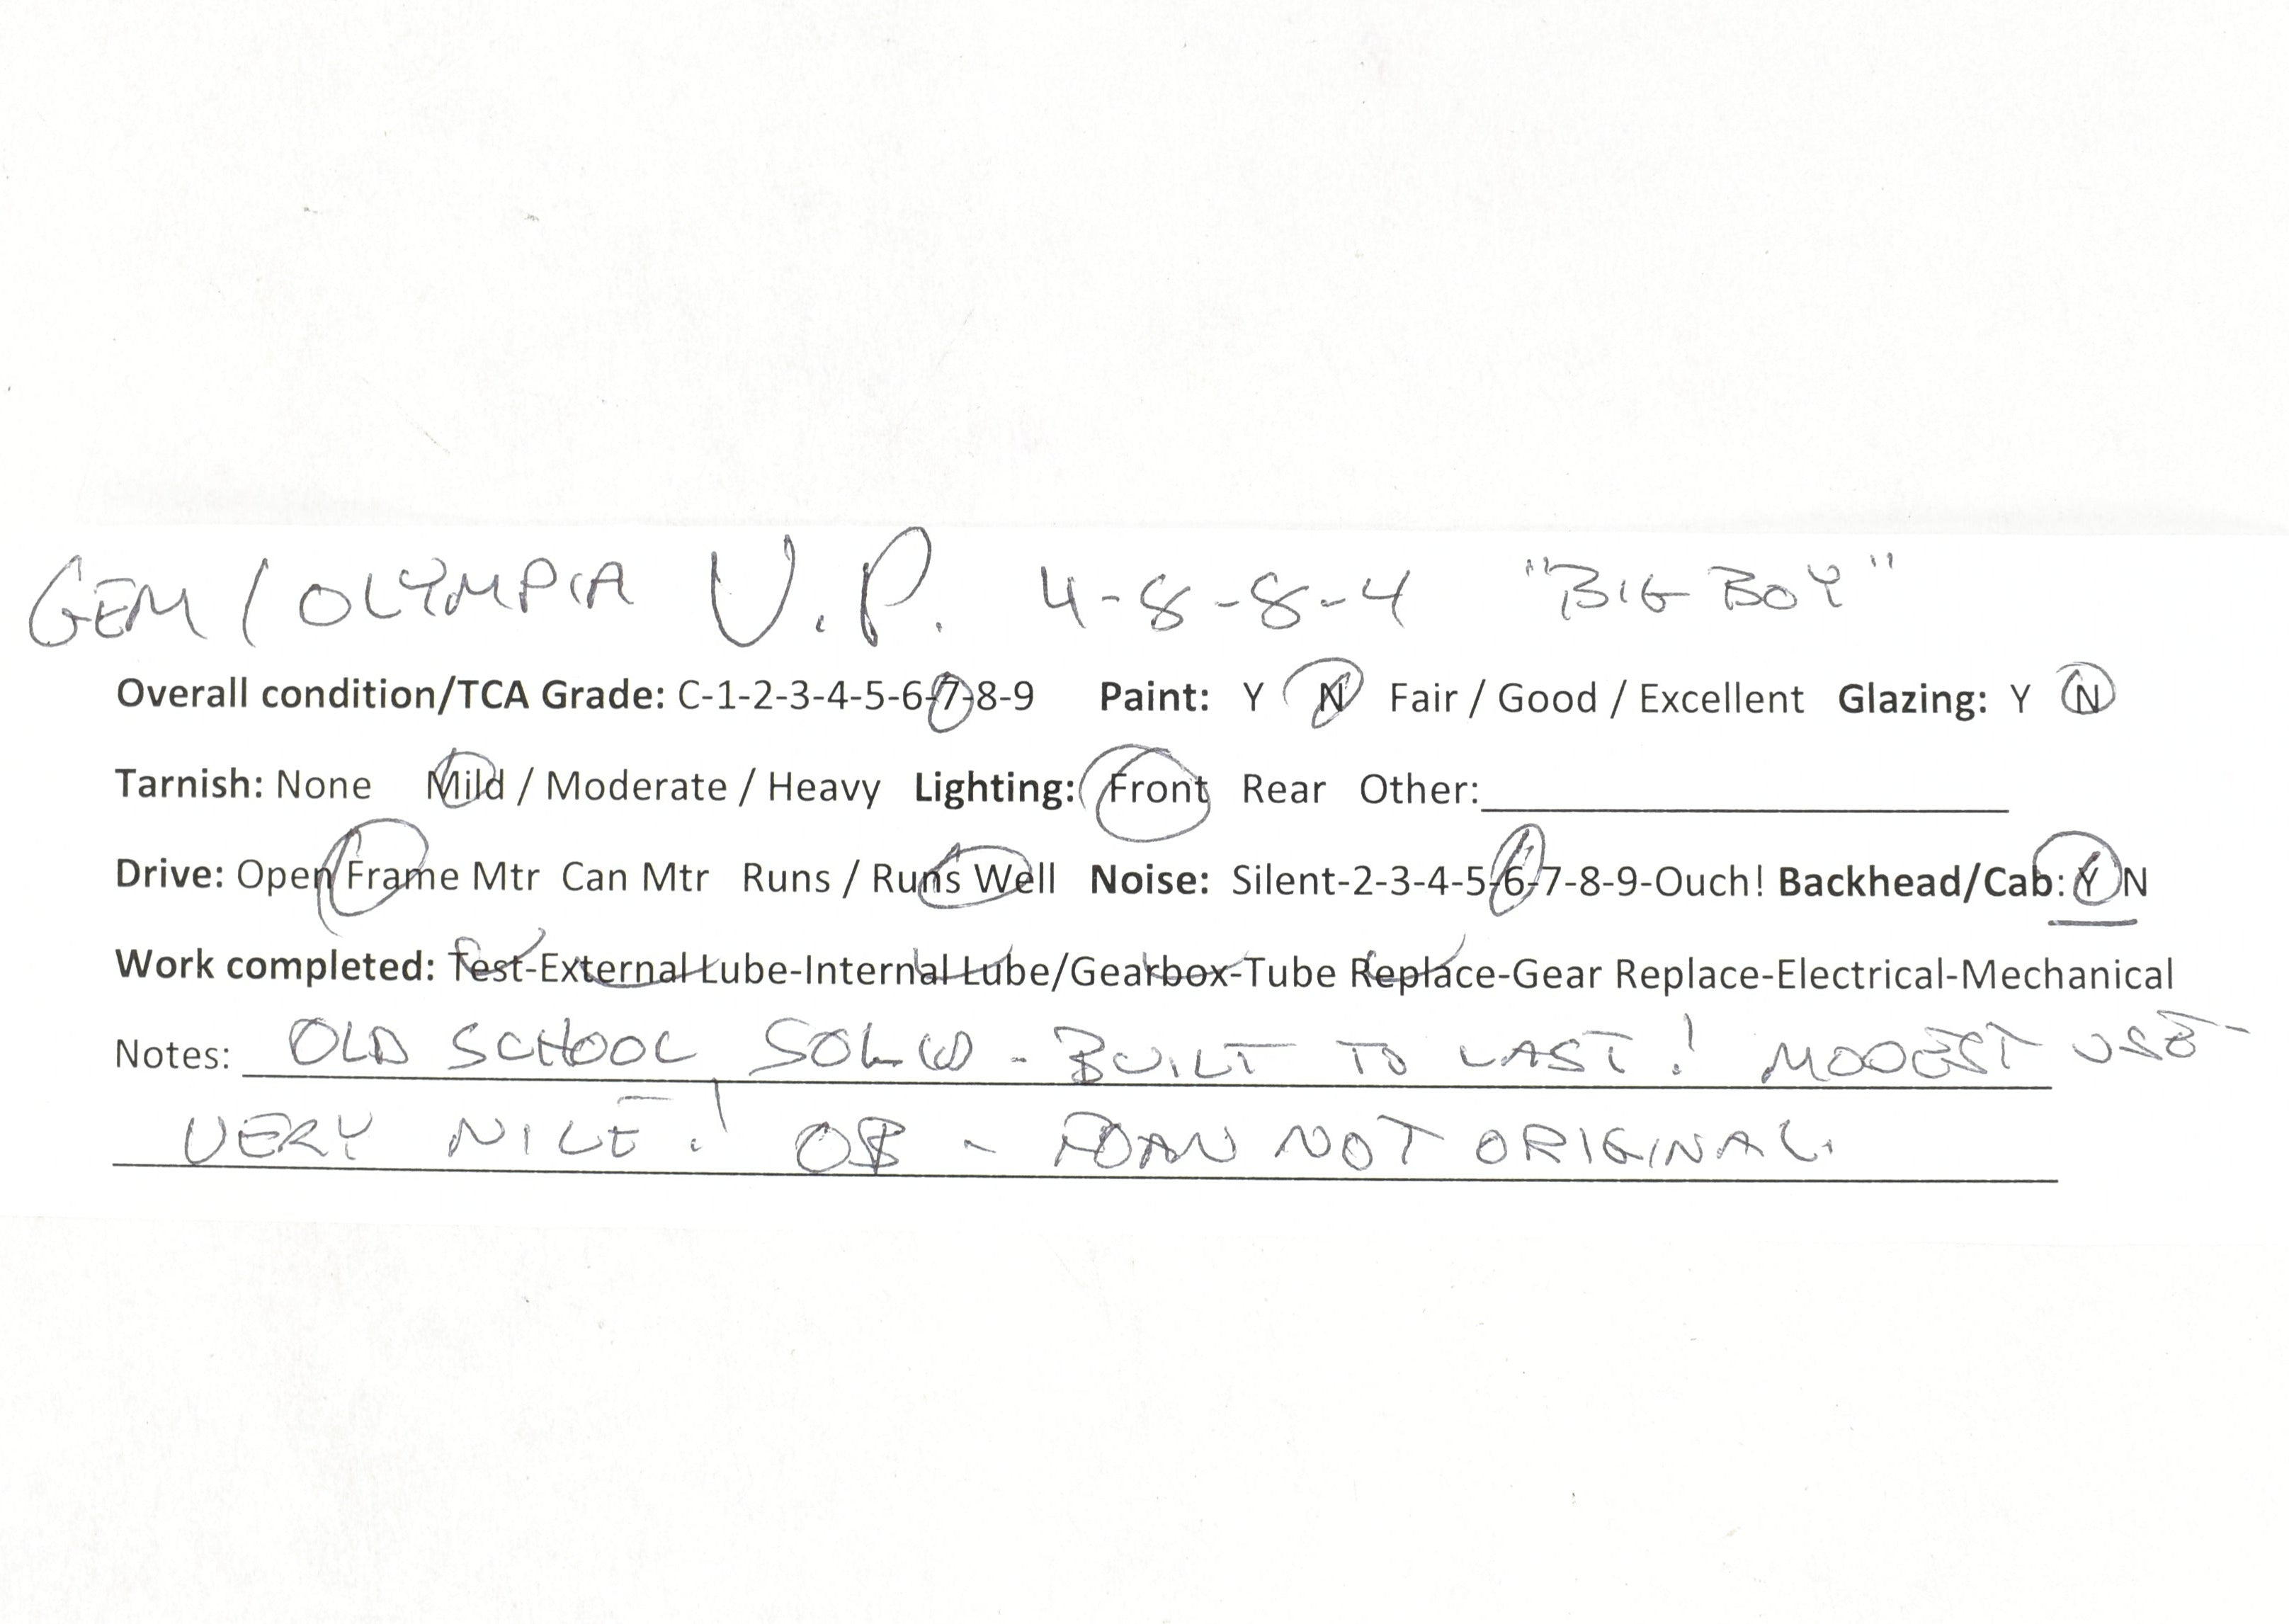 GEM / OLYMPIA U.P. 4-8-8-4 "BIG BOY"
Overall condition/TCA Grade: C-1-2-3-4-5-6-7-8-9 Paint: Y N Fair / Good / Excellent Glazing: Y N
Tarnish: None Mild / Moderate / Heavy Lighting: Front Rear Other:
Drive: Open Frame Mtr Can Mtr Runs / Runs Well Noise: Silent-2-3-4-5-6-7-8-9-Ouch! Backhead/Cab: Y N
Work completed: Test-External Lube-Internal Lube/Gearbox-Tube Replace-Gear Replace-Electrical-Mechanical
Notes: OLD SCHOOL SOLID - BUILT TO LAST! MODEST USE -
VERY NICE! OB - FOAM NOT ORIGINAL.